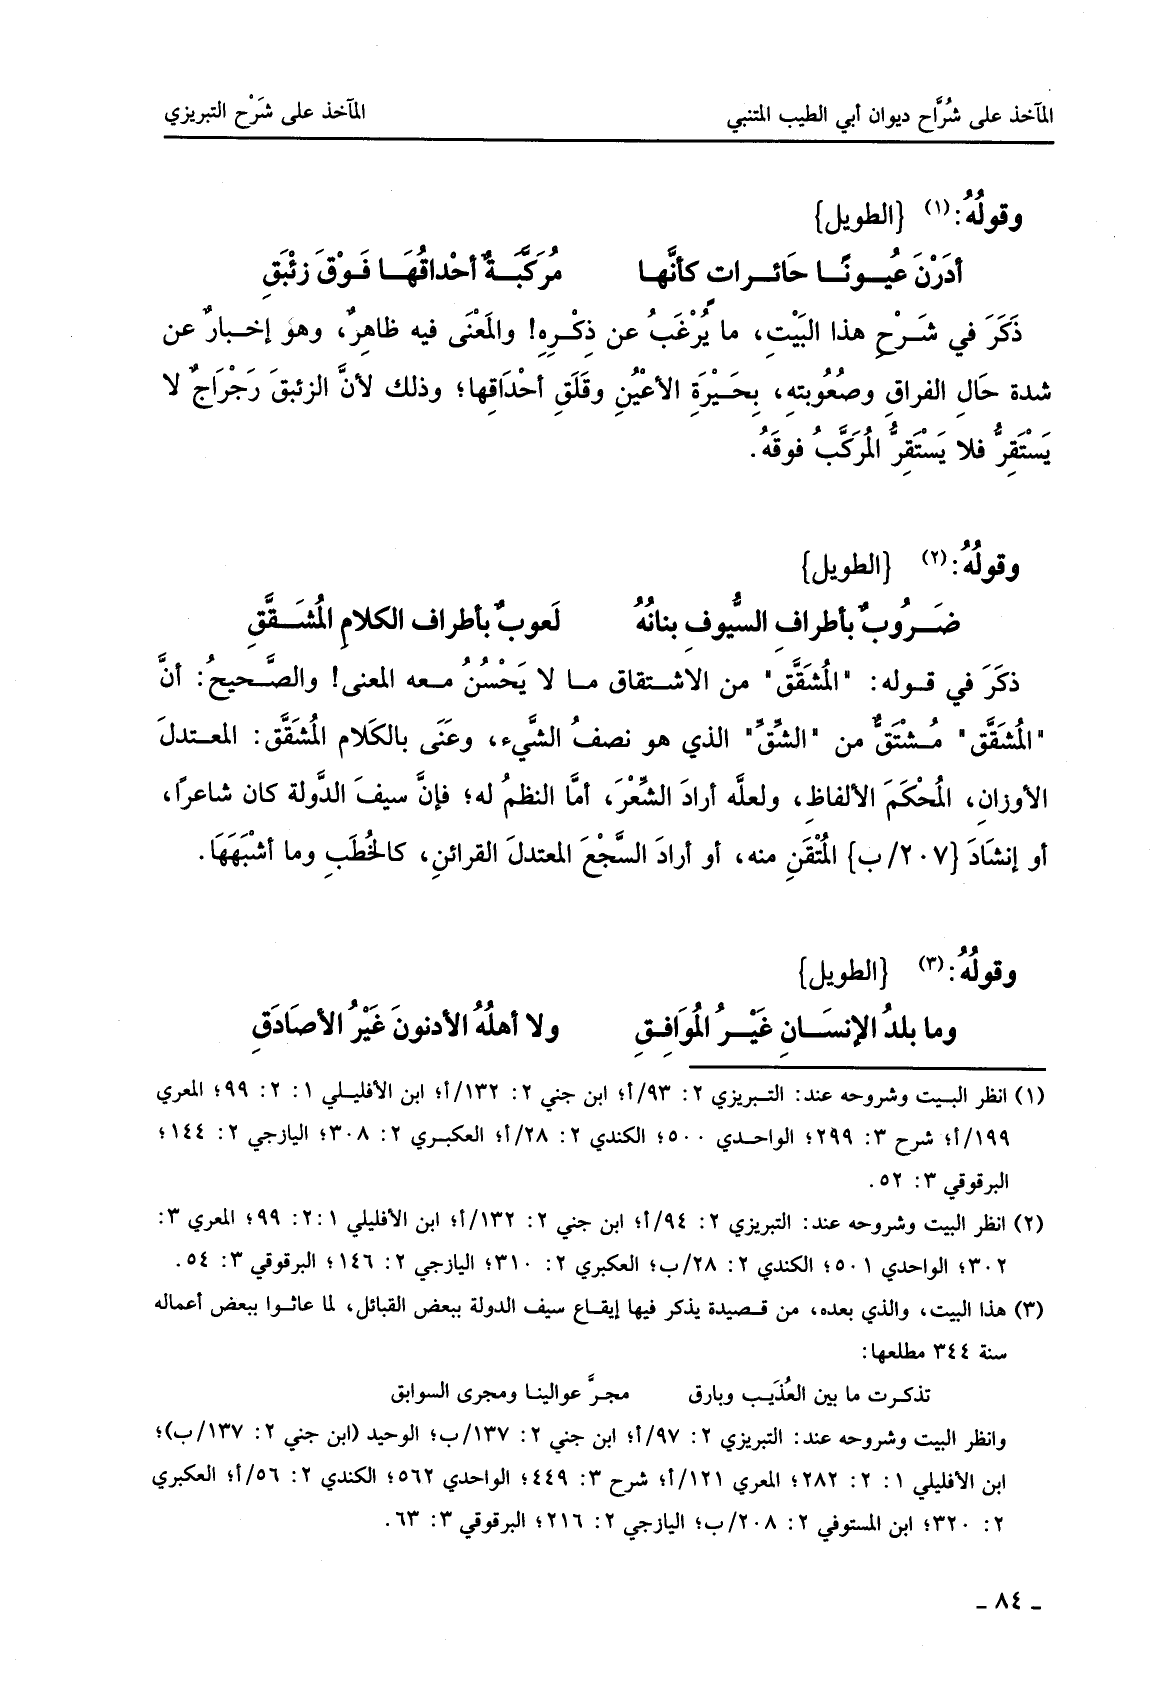 المآخذ على شُرَّاح ديوان أبي الطيب المتنبي المآخذ على شَرْح التبريزي
وقولُهُ:(١) {الطويل}
أدَرْنَ عُيــونًــا حَائــرات كأنَّهــا مُرَكَّبَــةٌ أحْداقُهَــا فَــوْقَ زئْبَقِ
ذَكَرَ في شَــرْحِ هذا البَيْتِ، ما يُرْغَبُ عن ذِكْـرِهِ! والمَعْنَى فيه ظاهِرٌ، وهو إخـبارٌ عن
شدة حَالِ الفراقِ وصُعُوبتهِ، بِحَـيْرَةِ الأعْيُنِ وقَلَقِ أحْدَاقِها؛ وذلك لأنَّ الزئبقَ رَجْرَاجٌ لا
يَسْتَقِرُّ فلا يَسْتَقِرُّ المُرَكَّبُ فوقَهُ.
وقولُهُ:(٢) {الطويل}
ضَــرُوبٌ بأطرافِ السُّيوفِ بنانُهُ لَعوبٌ بأطراف الكلامِ المُشَــقَّقِ
ذكَرَ في قـوله: "المُشَقَّق" من الاشـتقاق مـا لا يَحْسُنُ مـعه المعنى! والصَّـحيحُ: أنَّ
"المُشقَّق" مُـشْتَقٌّ من "الشِّقِّ" الذي هو نصفُ الشَّيء، وعَنَى بالكَلام المُشَقَّق: المعـتدلَ
الأوزانِ، المُحْكَمَ الألفاظِ، ولعلَّه أرادَ الشِّعْرَ، أمَّا النظمُ له؛ فإنَّ سيفَ الدَّولة كان شاعرًا،
أو إنشَادَ {٢٠٧/ب} المُتْقَنِ منه، أو أرادَ السَّجْعَ المعتدلَ القرائنِ، كالخُطَبِ وما أشْبَهَهَا.
وقولُهُ:(٣) {الطويل}
وما بلدُ الإنسَــانِ غَيْــرُ المُوَافِـقِ ولا أهلُهُ الأدنونَ غَيْرُ الأصَادَقِ
(١) انظر البـيت وشروحه عند: التـبريزي ٢: ٩٣/أ؛ ابن جني ٢: ١٣٢/أ؛ ابن الأفليـلي ١: ٢: ٩٩؛ المعري
١٩٩/أ؛ شرح ٣: ٢٩٩؛ الواحـدي ٥٠٠؛ الكندي ٢: ٢٨/أ؛ العكبـري ٢: ٣٠٨؛ اليازجي ٢: ١٤٤؛
البرقوقي ٣: ٥٢.
(٢) انظر البيت وشروحه عند: التبريزي ٢: ٩٤/أ؛ ابن جني ٢: ١٣٢/أ؛ ابن الأفليلي ٢:١: ٩٩؛ المعري ٣:
٣٠٢؛ الواحدي ٥٠١؛ الكندي ٢: ٢٨/ب؛ العكبري ٢: ٣١٠؛ اليازجي ٢: ١٤٦؛ البرقوقي ٣: ٥٤.
(٣) هذا البيت، والذي بعده، من قـصيدة يذكر فيها إيقـاع سيف الدولة ببعض القبائل، لما عاثـوا ببعض أعماله
سنة ٣٤٤ مطلعها:
تذكـرت ما بين العُذَيـب وبارق مجـرَّ عوالينـا ومجرى السوابق
وانظر البيت وشروحه عند: التبريزي ٢: ٩٧/أ؛ ابن جني ٢: ١٣٧/ب؛ الوحيد (ابن جني ٢: ١٣٧/ب)؛
ابن الأفليلي ١: ٢: ٢٨٢؛ المعري ١٢١/أ؛ شرح ٣: ٤٤٩؛ الواحدي ٥٦٢؛ الكندي ٢: ٥٦/أ؛ العكبري
٢: ٣٢٠؛ ابن المستوفي ٢: ٢٠٨/ب؛ اليازجي ٢: ٢١٦؛ البرقوقي ٣: ٦٣.
ـ ٨٤ ـ